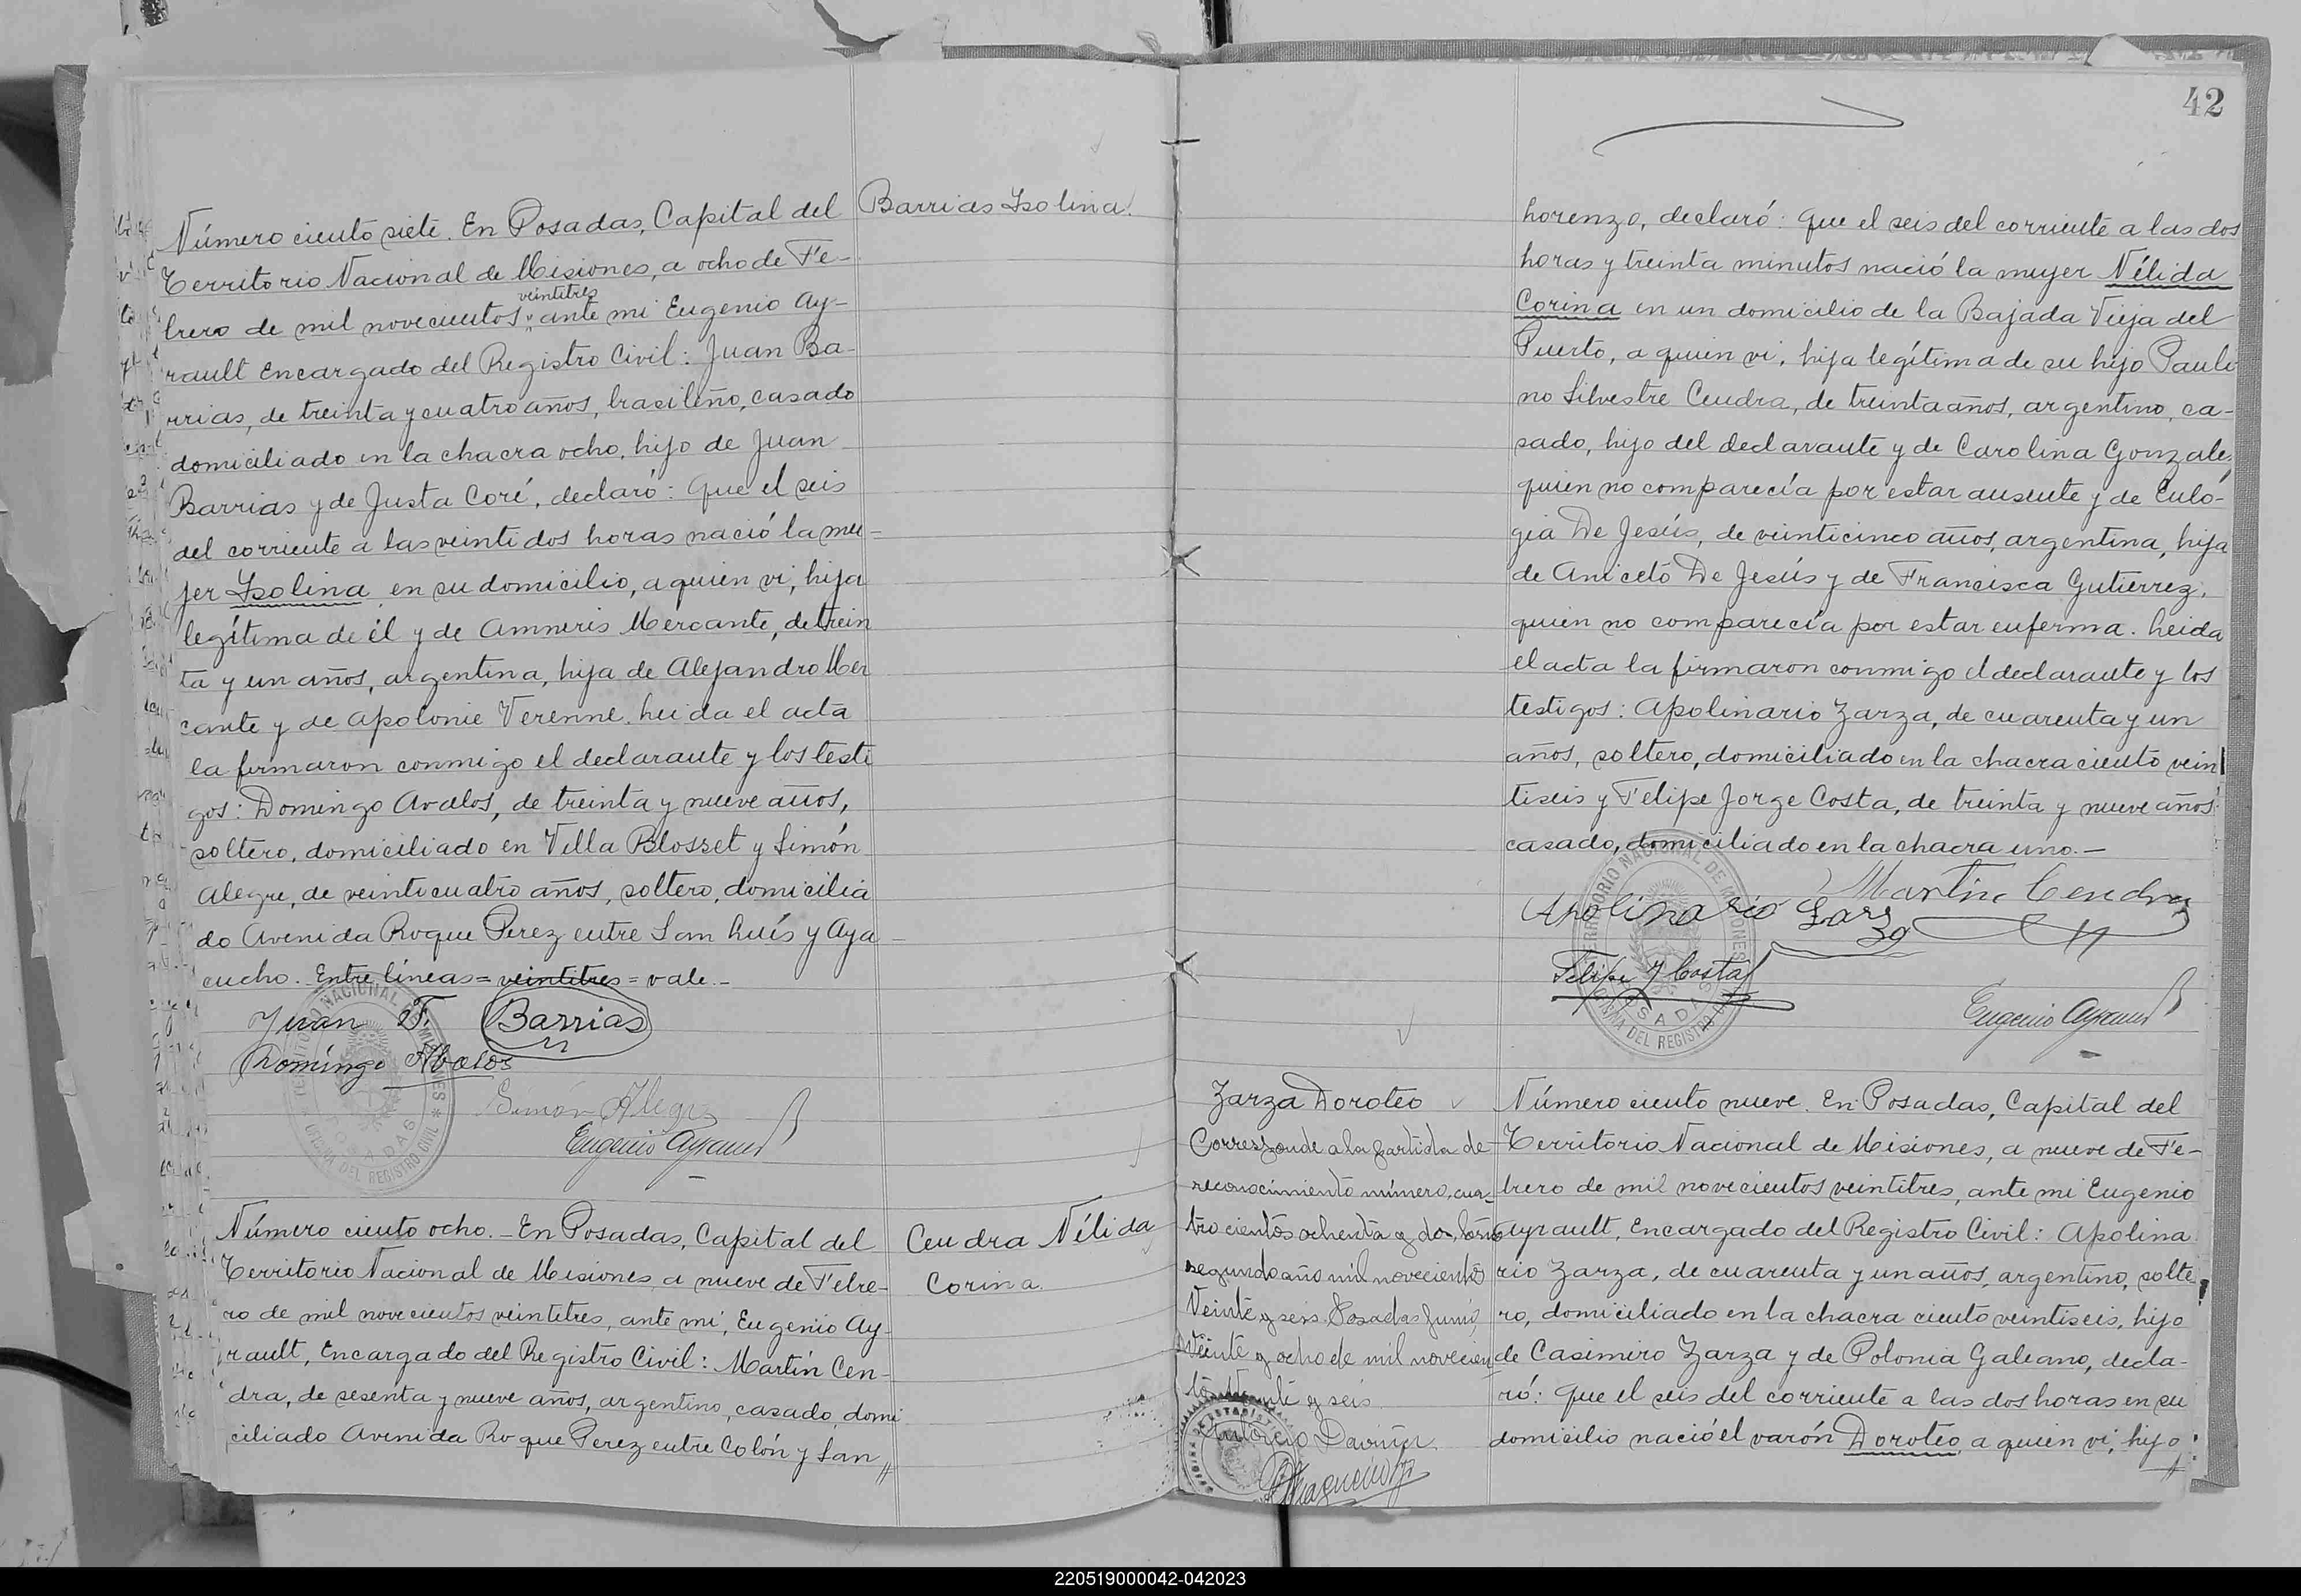 Número ciento siete. En Posadas, Capital del
Territorio Nacional de Misiones, a ocho de Fe-
veintitres
brero de mil novecientos ante mi Eugenio Ay-
rault Encargado del Registro Civil: Juan Ba-
rrias, de treinta y cuatro años, brasileño, casado
domiciliado en la chacra ocho, hijo de Juan
Barrias y de Justa Coré, declaró: Que el seis
del corriente a las veintidos horas nació la mu-
jer Isolina en su domicilio, a quien vi, hija
legítima de él y de Amneris Mercante, de trein
ta y un años, argentina, hija de Alejandro Mer
cante y de Apolonie Verenne. Leida el acta
la firmaron conmigo el declarante y los testi
gos: Domingo Avalos, de treinta y nueve años,
soltero, domiciliado en Villa Blosset y Simón
Alegre, de veinticuatro años, soltero, domicilia
do Avenida Roque Perez entre San Luís y Aya
cucho. Entre líneas = veintitres = vale.-
Juan F. Barrias
Domingo Abalos
Simón Alegre
Eugenio Ayrault
Barrias Isolina.
Número ciento ocho.- En Posadas, Capital del
Territorio Nacional de Misiones a nueve de Febre-
ro de mil novecientos veintitres, ante mi, Eugenio Ay-
rault, Encargado del Registro Civil: Martín Cen-
dra, de sesenta y nueve años, argentino, casado, domi
ciliado Avenida Roque Perez entre Colón y San
Cendra Nélida
Corina.
42
Lorenzo, declaró: Que el seis del corriente a las dos
horas y treinta minutos nació la mujer Nélida
Corina en un domicilio de la Bajada Vieja del
Puerto, a quien vi, hija legítima de su hijo Pauli
no Silvestre Cendra, de treinta años, argentino, ca-
sado, hijo del declarante y de Carolina Gonzalez,
quien no comparecía por estar ausente y de Euló-
gia De Jesús, de veinticinco años, argentina, hija
de Aniceto De Jesús y de Francisca Gutierrez,
quien no comparecía por estar enferma. Leida
el acta la firmaron conmigo el declarante y los
testigos: Apolinario Zarza, de cuarenta y un
años, soltero, domiciliado en la chacra ciento vein
tiseis y Felipe Jorge Costa, de treinta y nueve años
casado, domiciliado en la chacra uno.-
Martin Cendra
Apolinario Zarza
Felipe J Costa
Eugenio Ayrault
Zarza Doroteo
Corresponde a la partida de
reconocimiento número, cua-
trocientos ochenta y dos, tomo
segundo año mil novecientos
Veinte y seis. Posadas Junio
Veinte y ocho de mil novecien
tos Veinte y seis
Número ciento nueve. En Posadas, Capital del
Territorio Nacional de Misiones, a nueve de Fe-
brero de mil novecientos veintitres, ante mi Eugenio
Ayrault, Encargado del Registro Civil: Apolina
rio Zarza, de cuarenta y un años, argentino, solte
ro, domiciliado en la chacra ciento veintiseis, hijo
de Casimiro Zarza y de Polonia Galeano, decla-
ró: Que el seis del corriente a las dos horas en su
domicilio nació el varón Doroteo, a quien vi, hijo
220519000042-042023